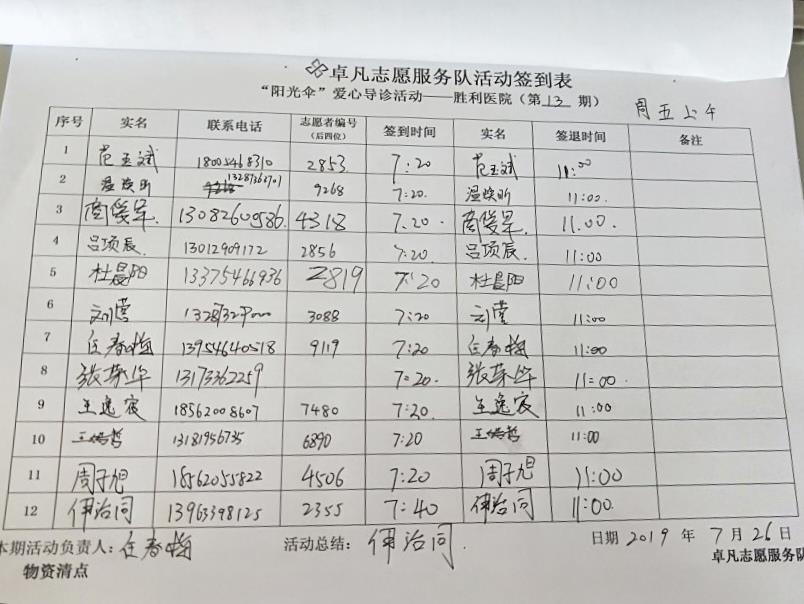 卓凡志愿服务队活动签到表
“阳光伞”爱心导诊活动——胜利医院（第 13 期） 周五上午
序号 实名 联系电话 志愿者编号（后四位） 签到时间 实名 签退时间 备注
1 范玉斌 18005468310 2853 7:20 范玉斌 11:00
2 温焕昕 13287362701 9268 7:20. 温焕昕 11:00.
3 13082600586. 4318 7.20. 11.00.
4 吕项辰. 13012909172 2856 7:20. 吕项辰. 11:00
5 杜晨阳 13375466936 2819 7:20 杜晨阳 11:00
6 刘莹 3088 7:20 刘莹 11:00
7 任春梅 13954640518 9119 7:20 任春梅 11:00
8 张荣华 13173362259 7:20. 张荣华 11:00.
9 王逸宸 18562008607 7480 7:20. 王逸宸 11:00
10 13181956735 6890 7:20 11:00
11 周子旭 18562055822 4506 7:20 周子旭 11:00
12 13963398125 2355 7:40 11:00.
本期活动负责人：任春梅 活动总结： 日期 2019 年 7 月 26 日
物资清点 卓凡志愿服务队